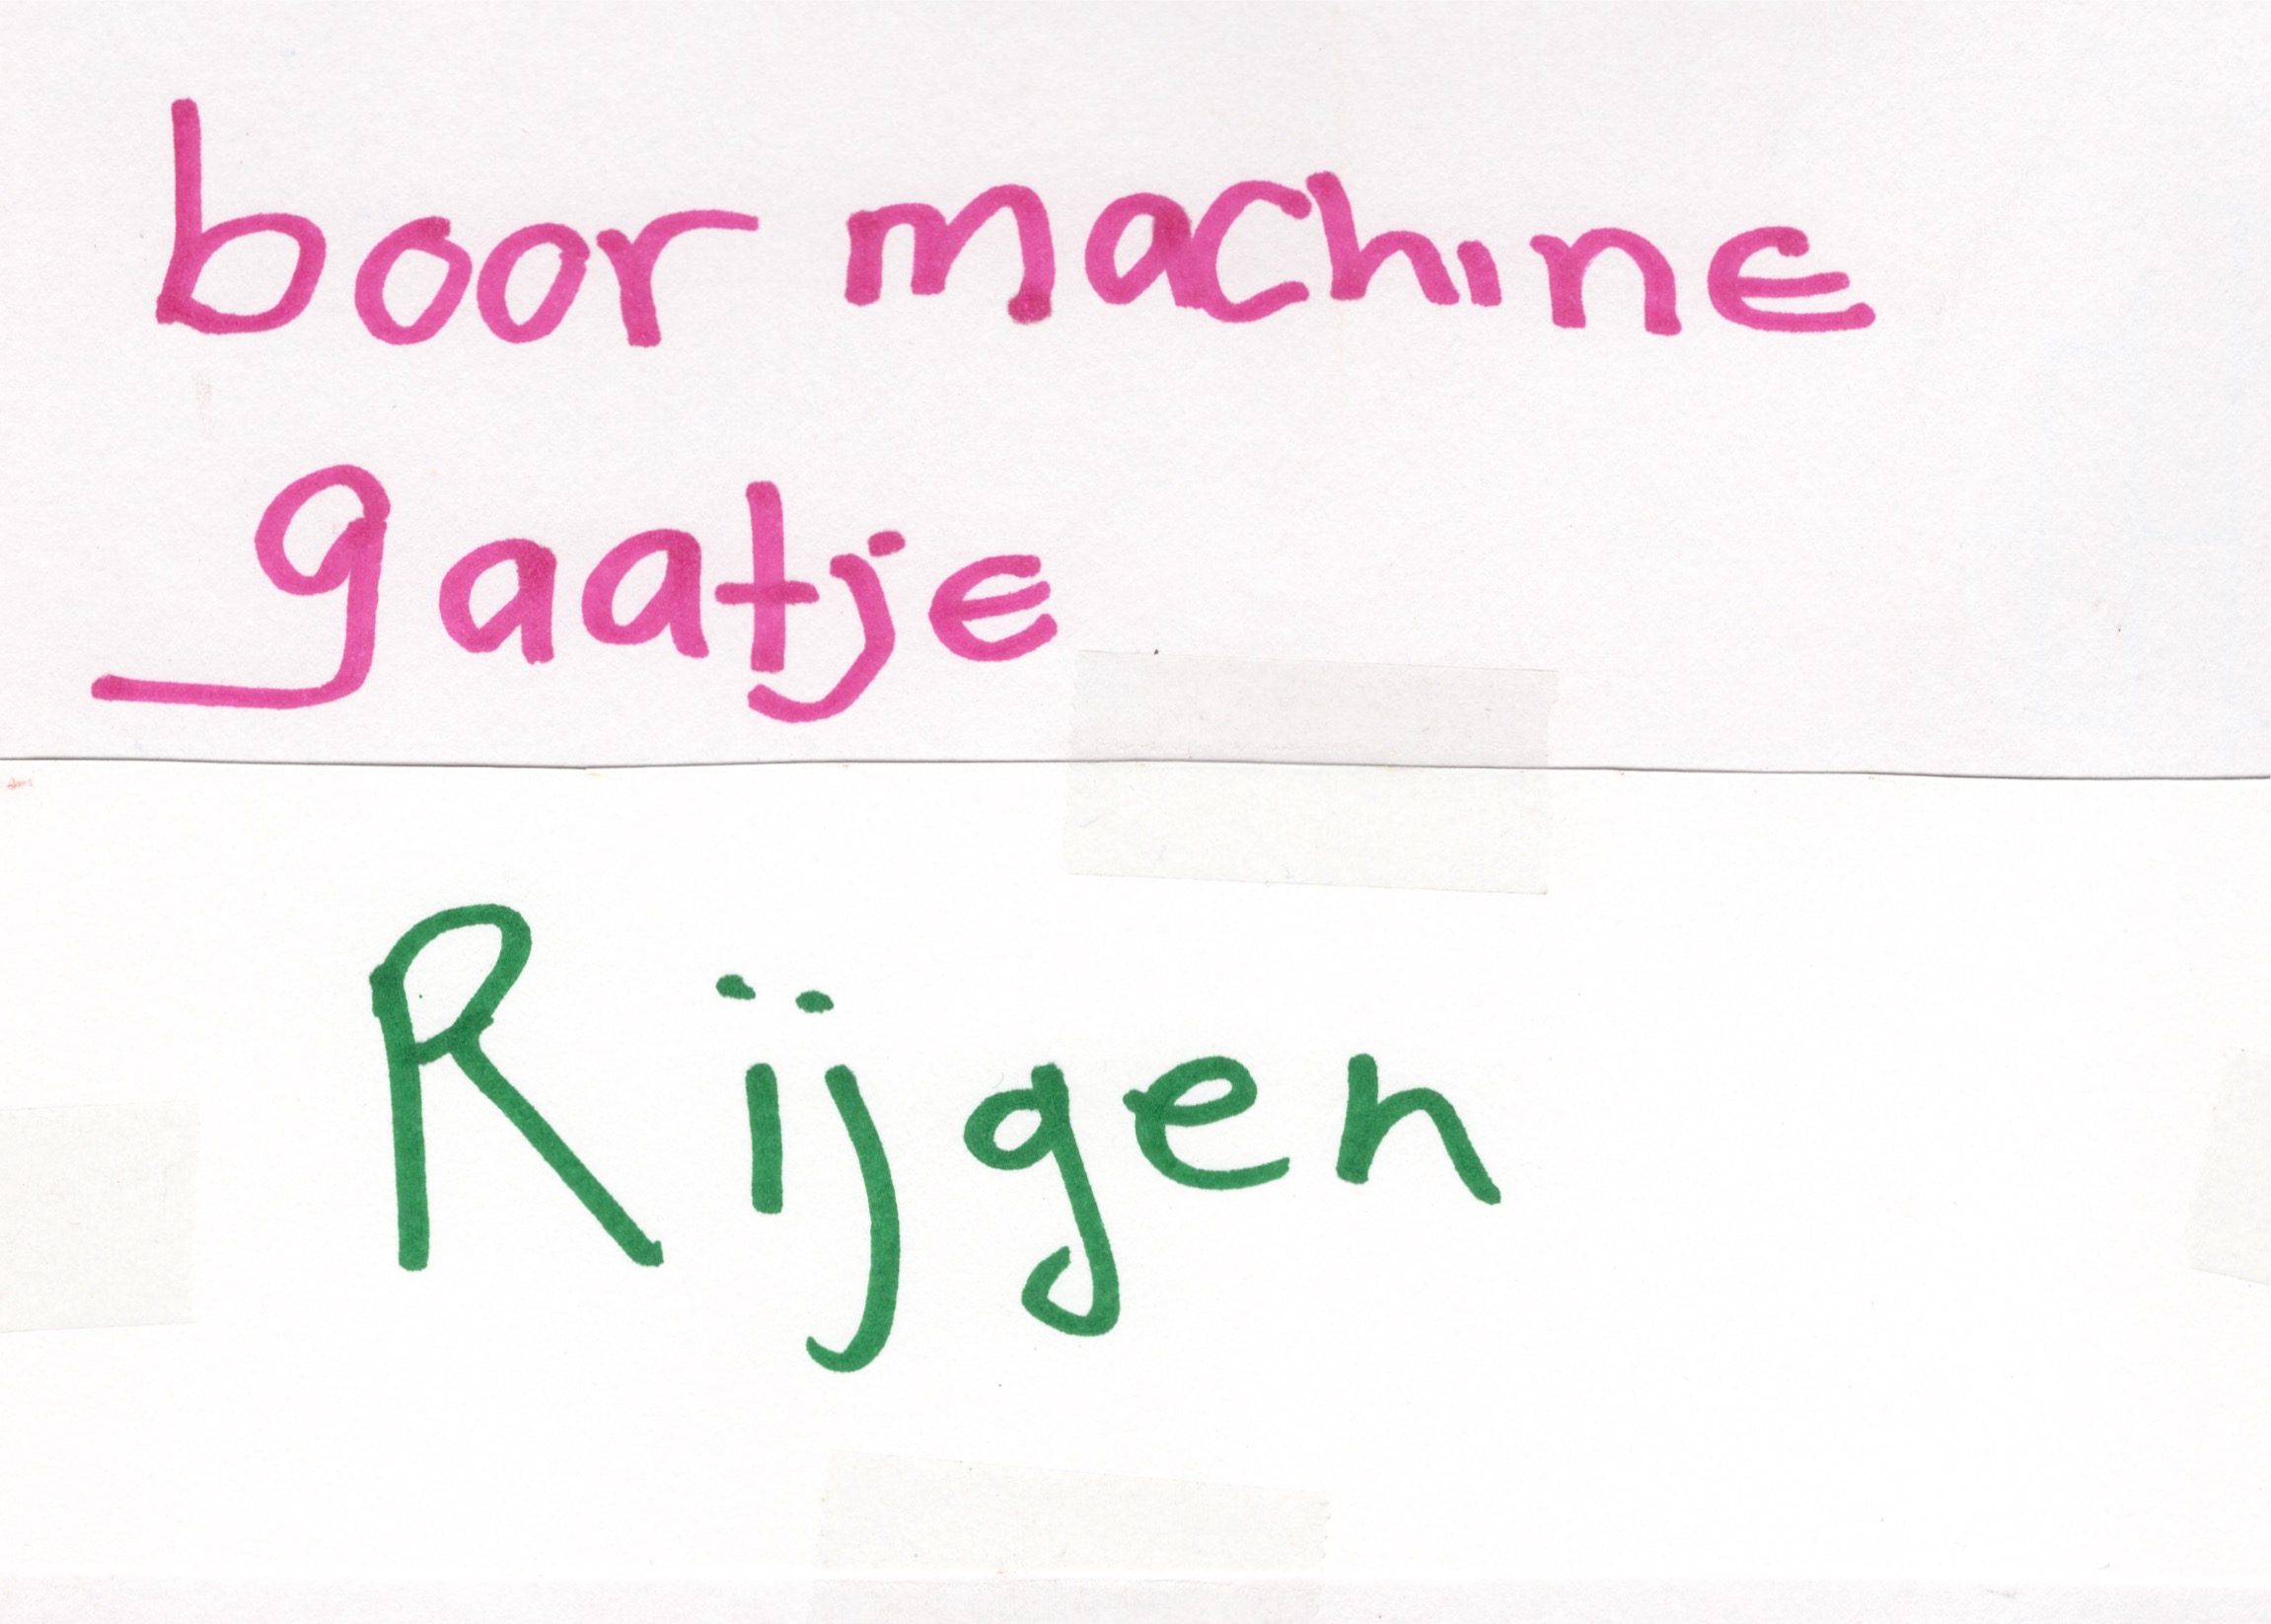 boor machine
gaatje
Rijgen